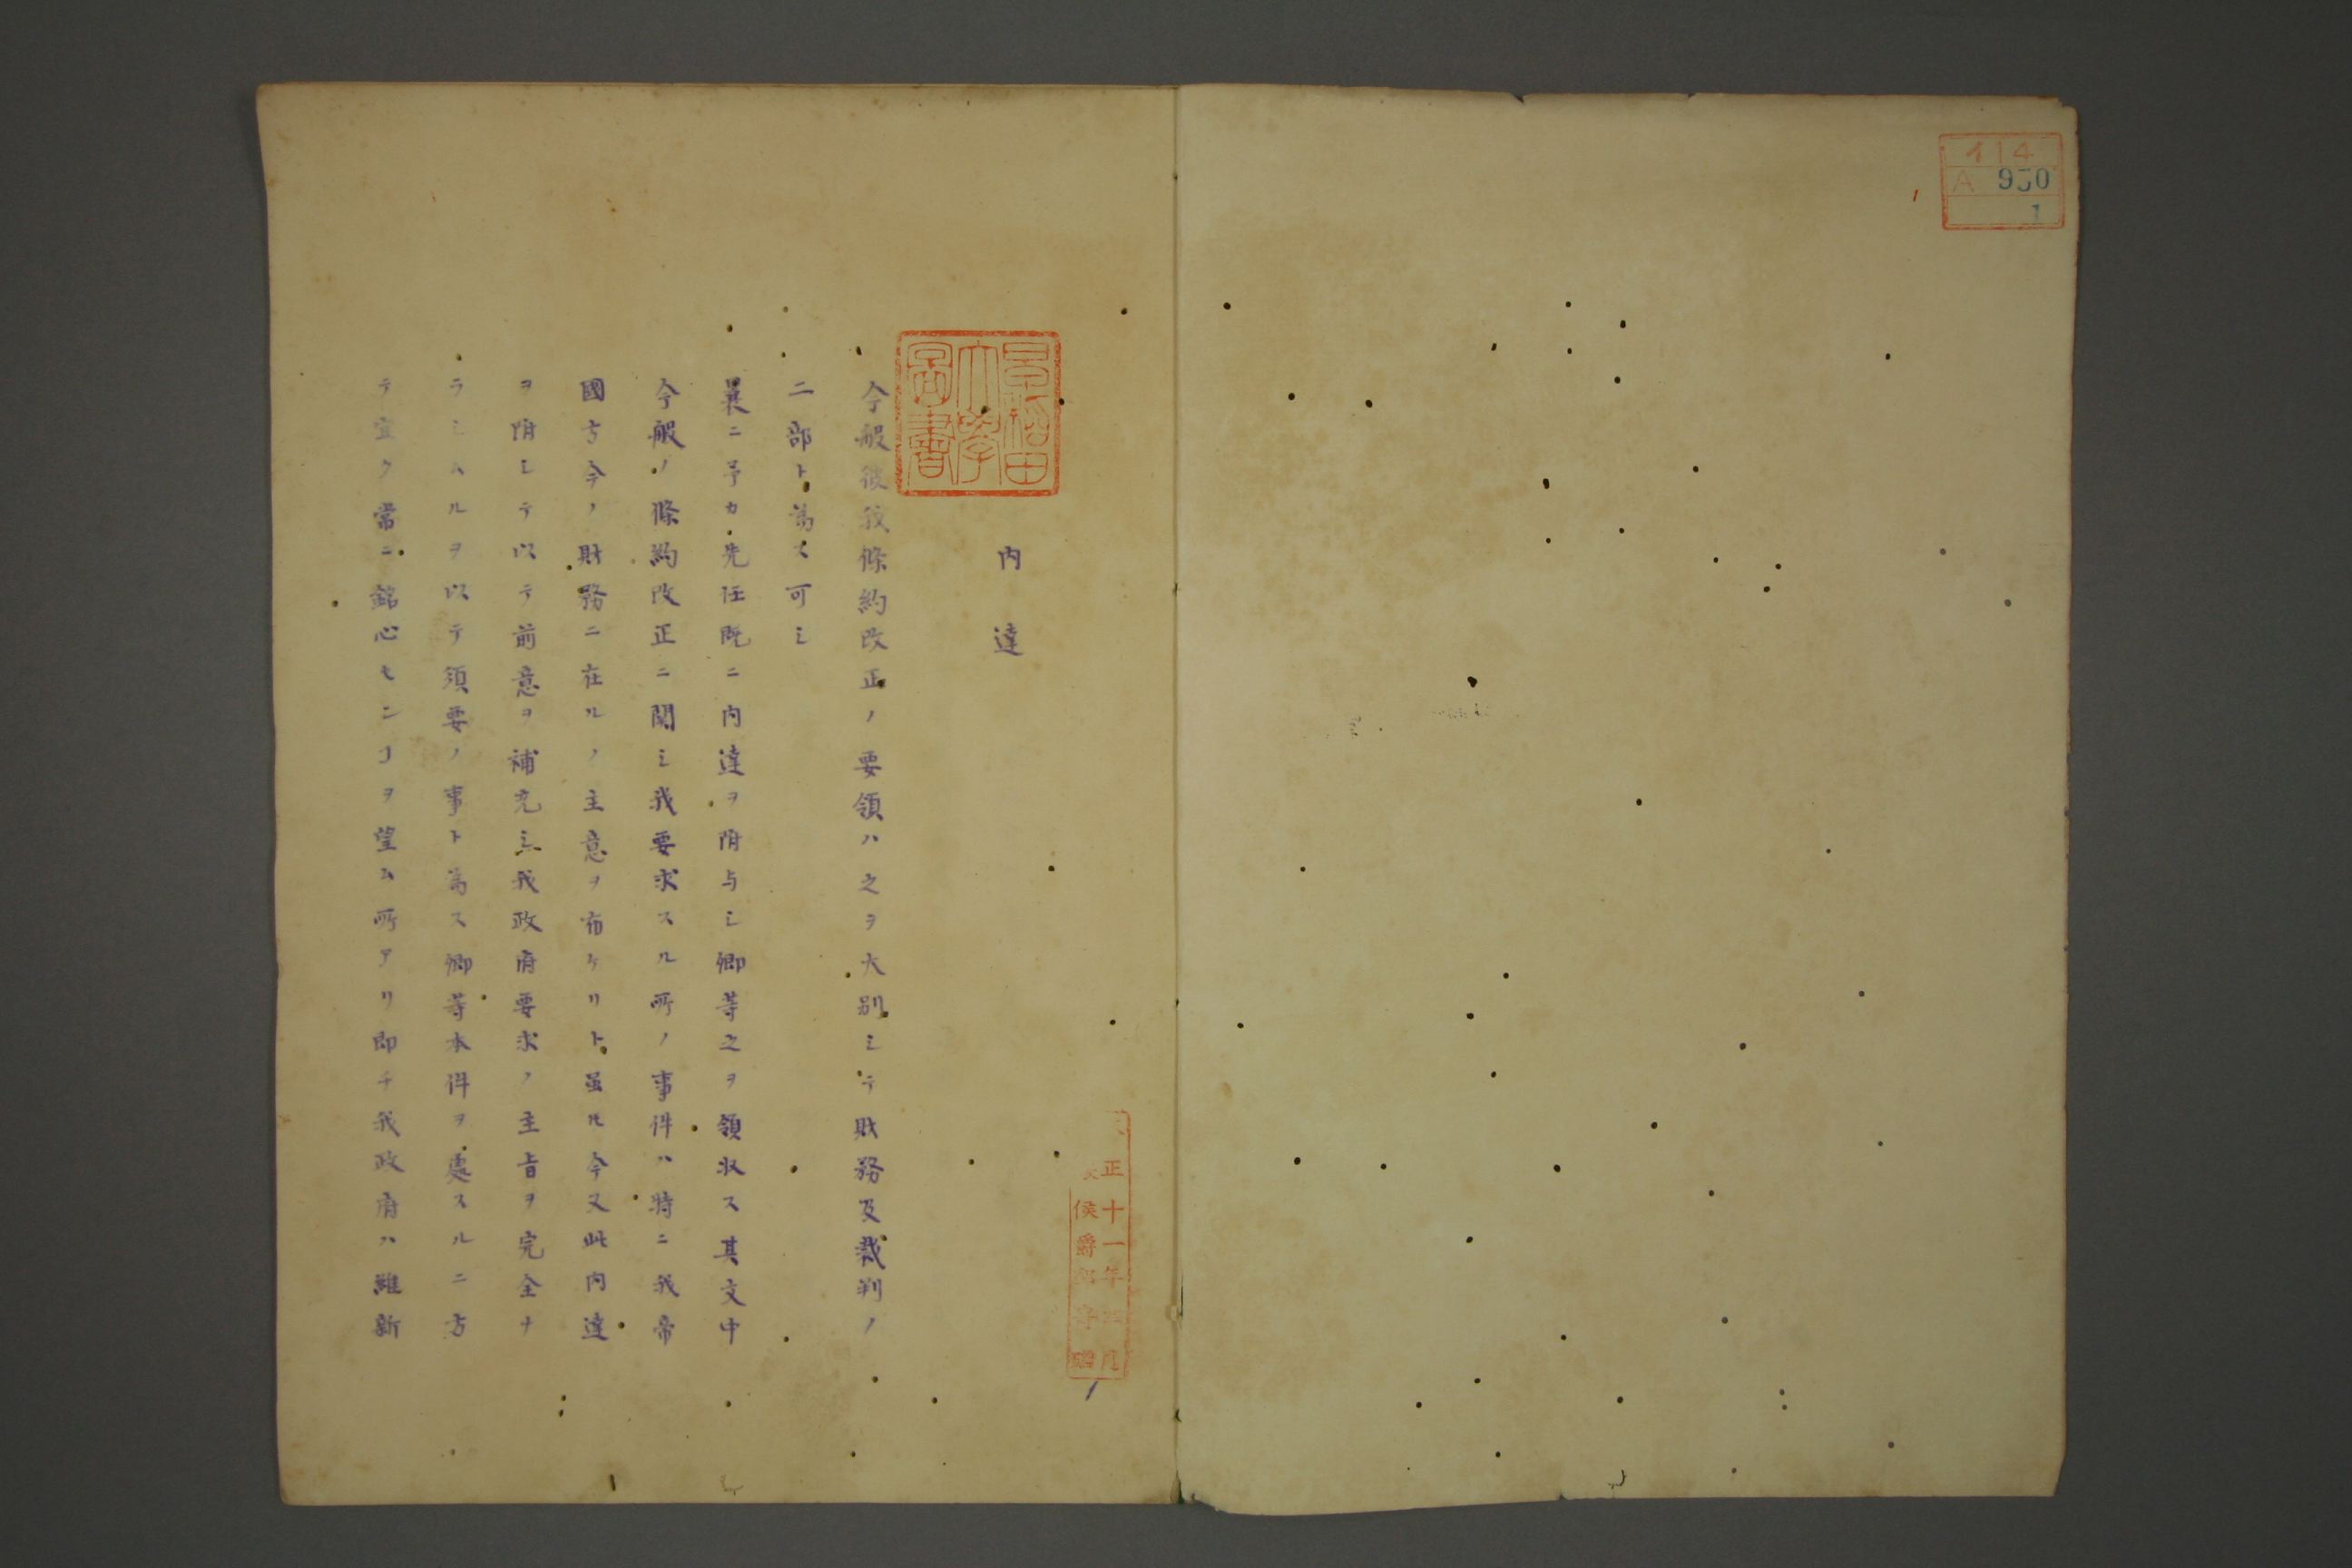 イ14
A 950
1
早稲田
大學
圖書
内達
今般彼我條約改正ノ要領ハ之ヲ大別シテ財務及裁判ノ
二部ト為ス可シ
曩ニ予カ先任既ニ内達ヲ附与シ卿等之ヲ領収ス其文中
今般ノ條約改正ニ関シ我要求スル所ノ事件ハ特ニ我帝
國方今ノ財務ニ在ルノ主意ヲ布ケリト虽ル今又此内達
ヲ附シテ以テ前意ヲ補充シ我政府要求ノ主旨ヲ完全ナ
ラシムルヲ以テ須要ノ事ト為ス卿等本件ヲ處スルニ方
テ宜ク常ニ銘心センヿヲ望ム所アリ即チ我政府ハ維新
正十一年 月
侯爵 寄贈